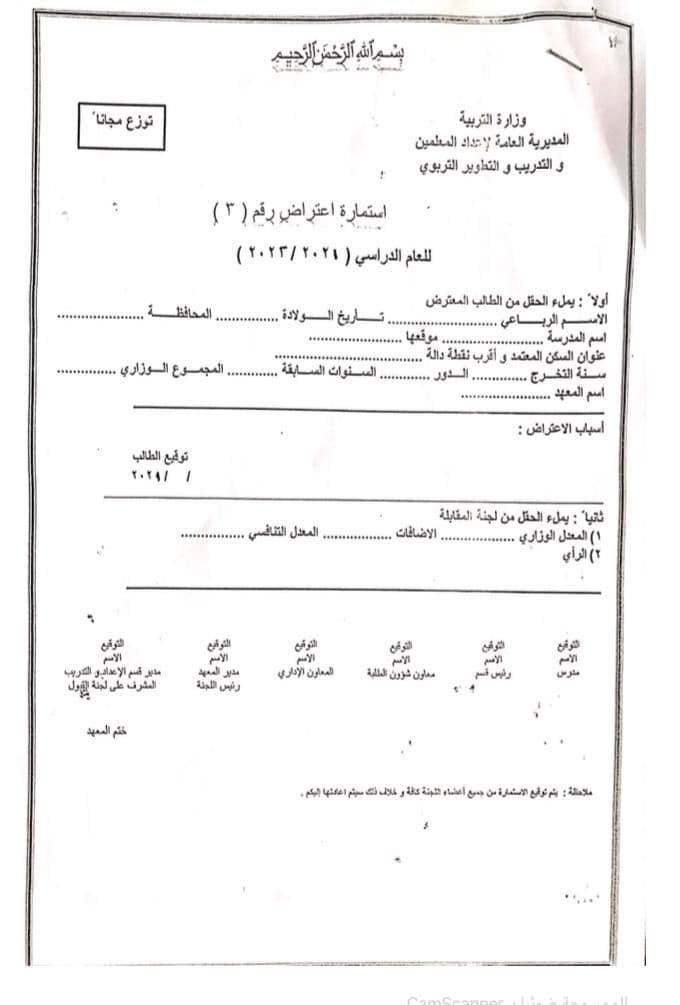 بسم الله الرحمن الرحيم
توزع مجاناً
وزارة التربية
المديرية العامة لإعداد المعلمين
و التدريب و التطوير التربوي
استمارة اعتراض رقم ( ٣ )
للعام الدراسي
أولاً : يملء الحقل من الطالب المعترض
الاسم الرباعي .......................... تاريخ الولادة ............... المحافظة .....................
اسم المدرسة ........................ موقعها ......................
عنوان السكن المعتمد و أقرب نقطة دالة ...................................
سنة التخرج ............. الدور ............ السنوات السابقة ............ المجموع الوزاري ..............
اسم المعهد .....................
أسباب الاعتراض :
توقيع الطالب
/ /
ثانياً : يملء الحقل من لجنة المقابلة
١) المعدل الوزاري .................. الاضافات ................ المعدل التنافسي ...............
٢) الرأي
التوقيع التوقيع التوقيع التوقيع التوقيع التوقيع
الاسم الاسم الاسم الاسم الاسم الاسم
مدرس رئيس قسم معاون شؤون الطلبة المعاون الإداري مدير المعهد مدير قسم الإعداد و التدريب
رئيس اللجنة المشرف على لجنة القبول
ختم المعهد
ملاحظة : يتم توقيع الاستمارة من جميع أعضاء اللجنة كافة و خلاف ذلك سيتم اعادتها إليكم .
CamScanner